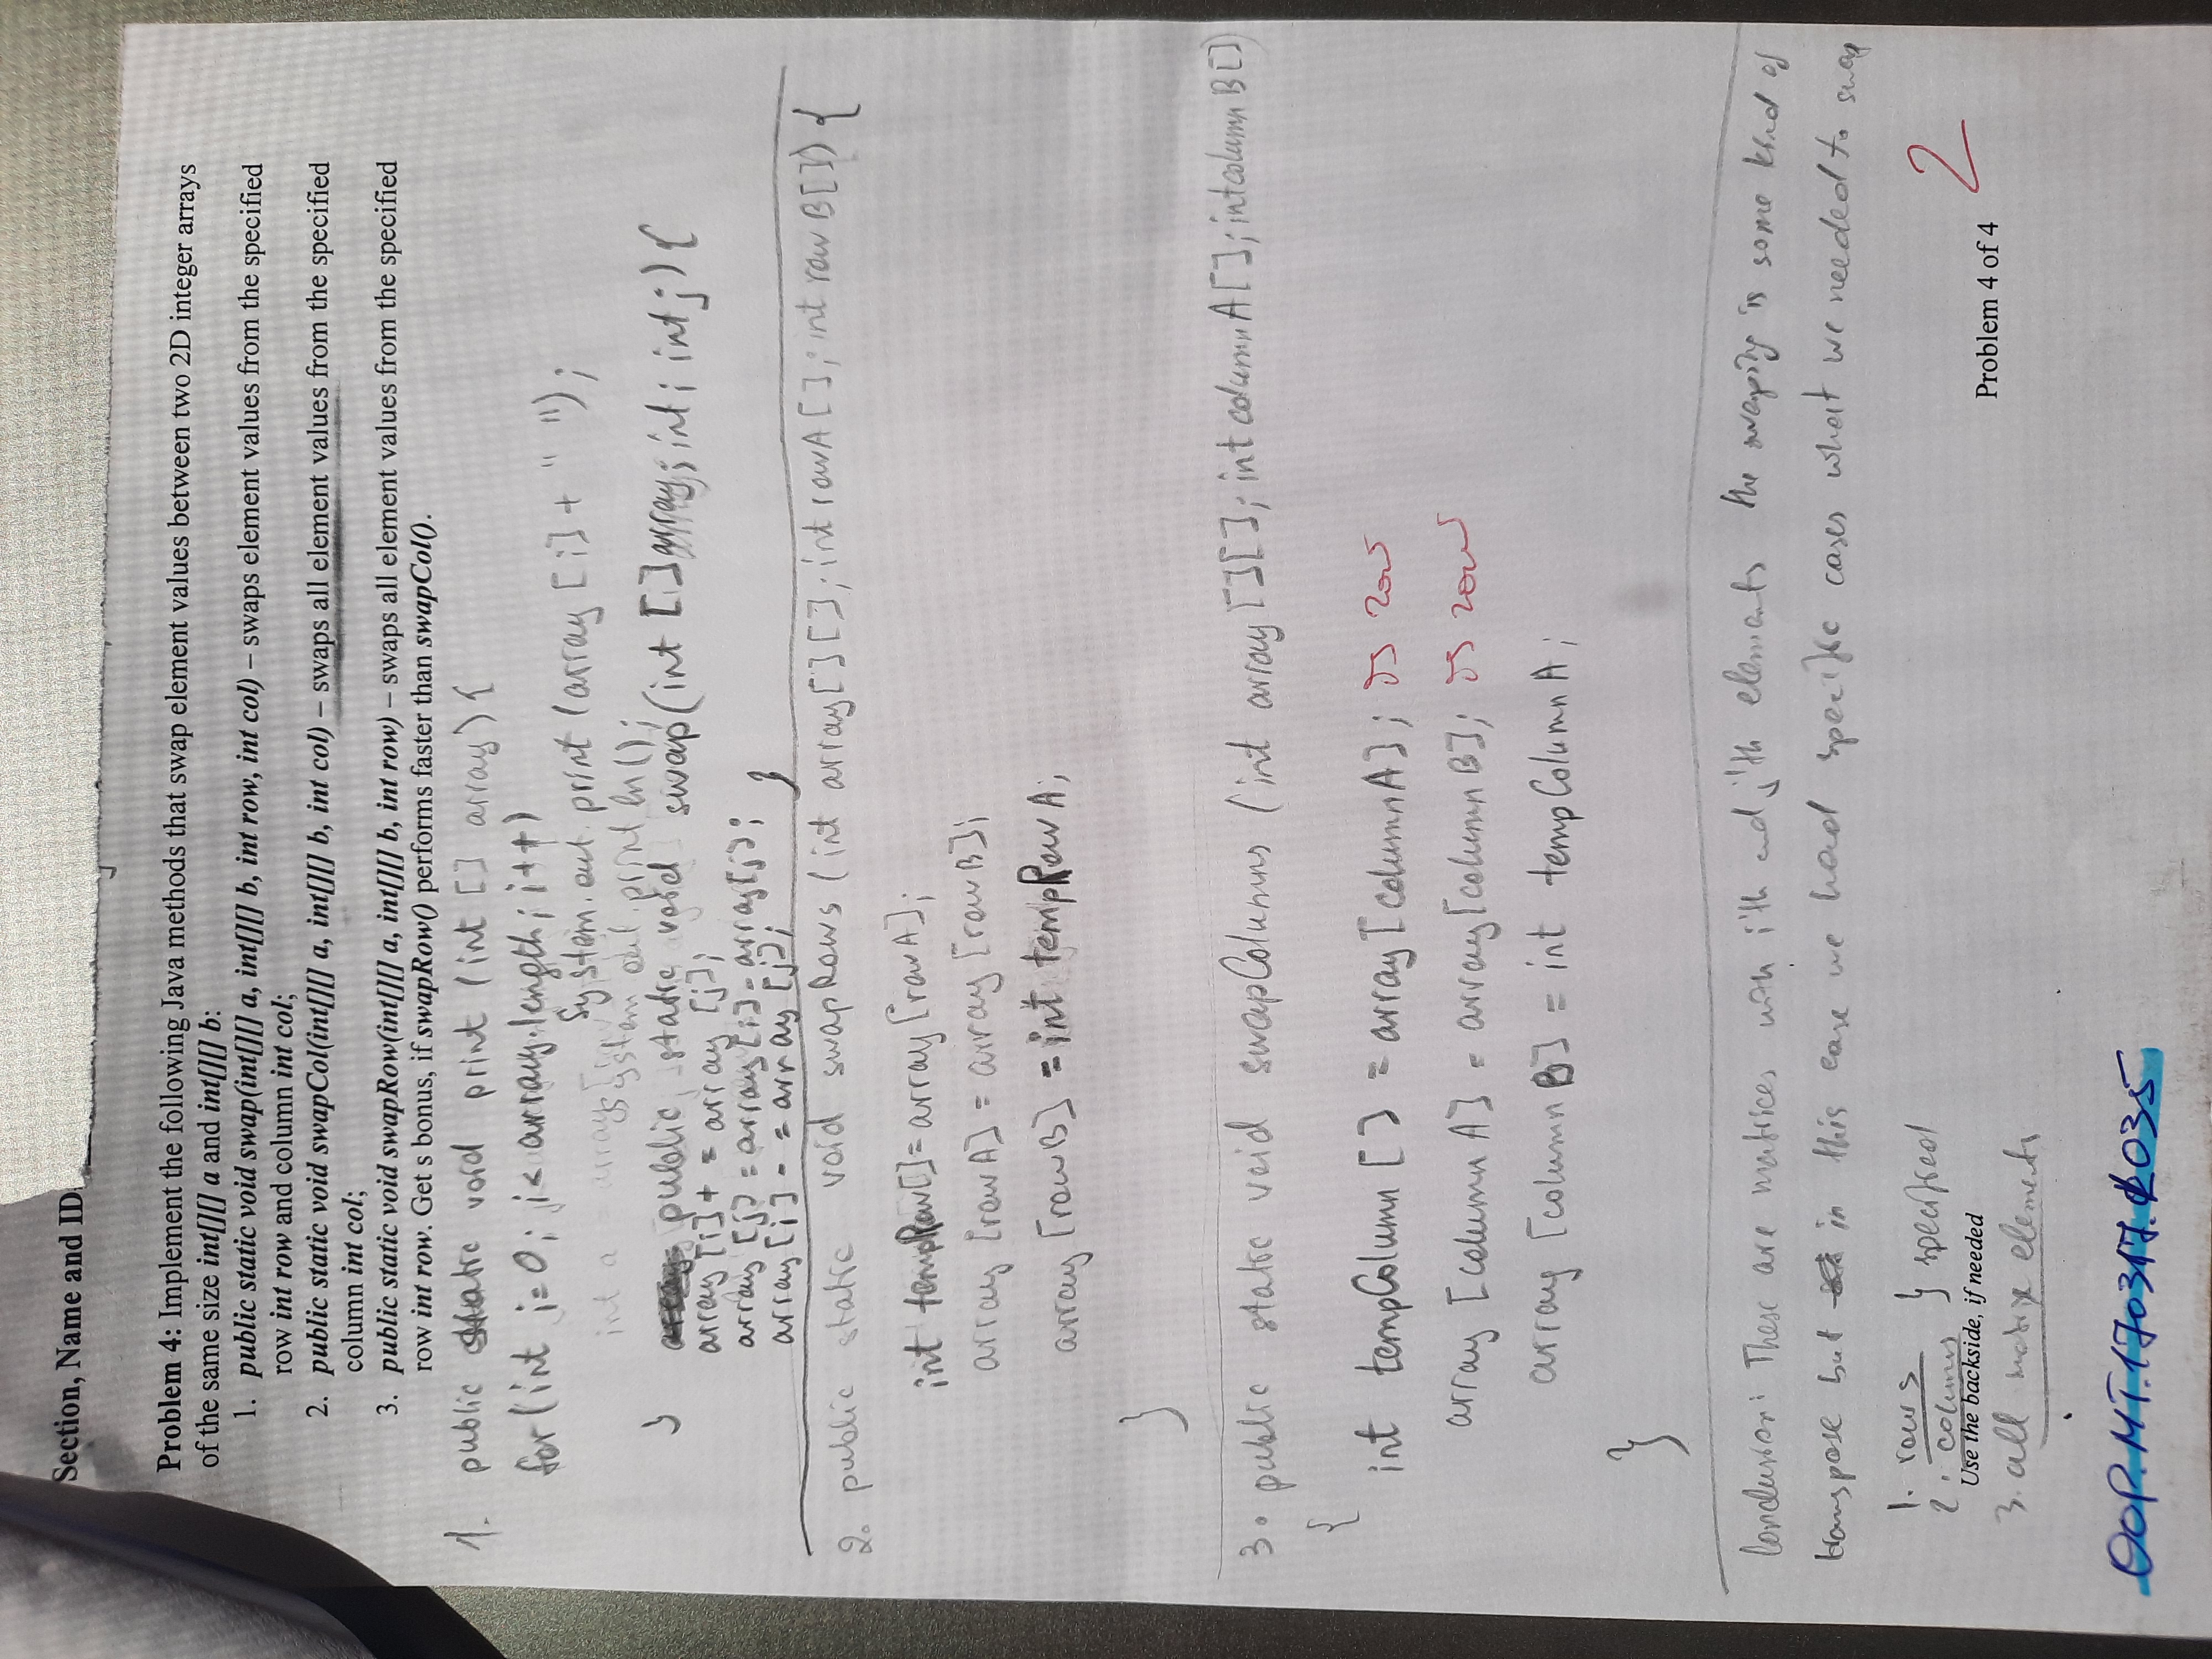 Section, Name and ID
Problem 4: Implement the following Java methods that swap element values between two 2D integer arrays
of the same size int[][] a and int[][] b:
1. public static void swap(int[][] a, int[][] b, int row, int col) – swaps element values from the specified
row int row and column int col;
2. public static void swapCol(int[][] a, int[][] b, int col) – swaps all element values from the specified
column int col;
3. public static void swapRow(int[][] a, int[][] b, int row) – swaps all element values from the specified
row int row. Get s bonus, if swapRow() performs faster than swapCol().
1. public static void print (int [] array) {
for (int i=0; i< array.length; i++)
System.out.print (array [i] + " ");
int a = array
System.out.println();
} public static void swap(int []array; int i int j) {
array [i] + = array [j];
array [j] = array [i] - array[j];
array [i] - = array [j]; }
2. public static void swapRows (int array[][]; int rowA []; int rowB[]) {
int tempRow[] = array [rowA];
array [rowA] = array [rowB];
array [rowB] = int tempRowA;
}
3. public static void swapColumns (int array [][]; int columnA []; int columnB [])
{
int tempColumn [] = array [columnA]; is row
array [columnA] = array [columnB]; is row
array [columnB] = int tempColumnA;
}
Conclusion: These are matrices with i'th and j'th elements the swaping is some kind of
transpose but in this case we had specific cases what we needed to swap
1. rows } specified
2. columns
Use the backside, if needed
Problem 4 of 4 2
3. all matrix elements
OOP.MT.170317.L035